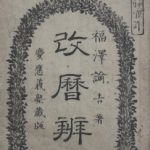 福澤諭吉著
改暦辨
慶應義塾蔵版